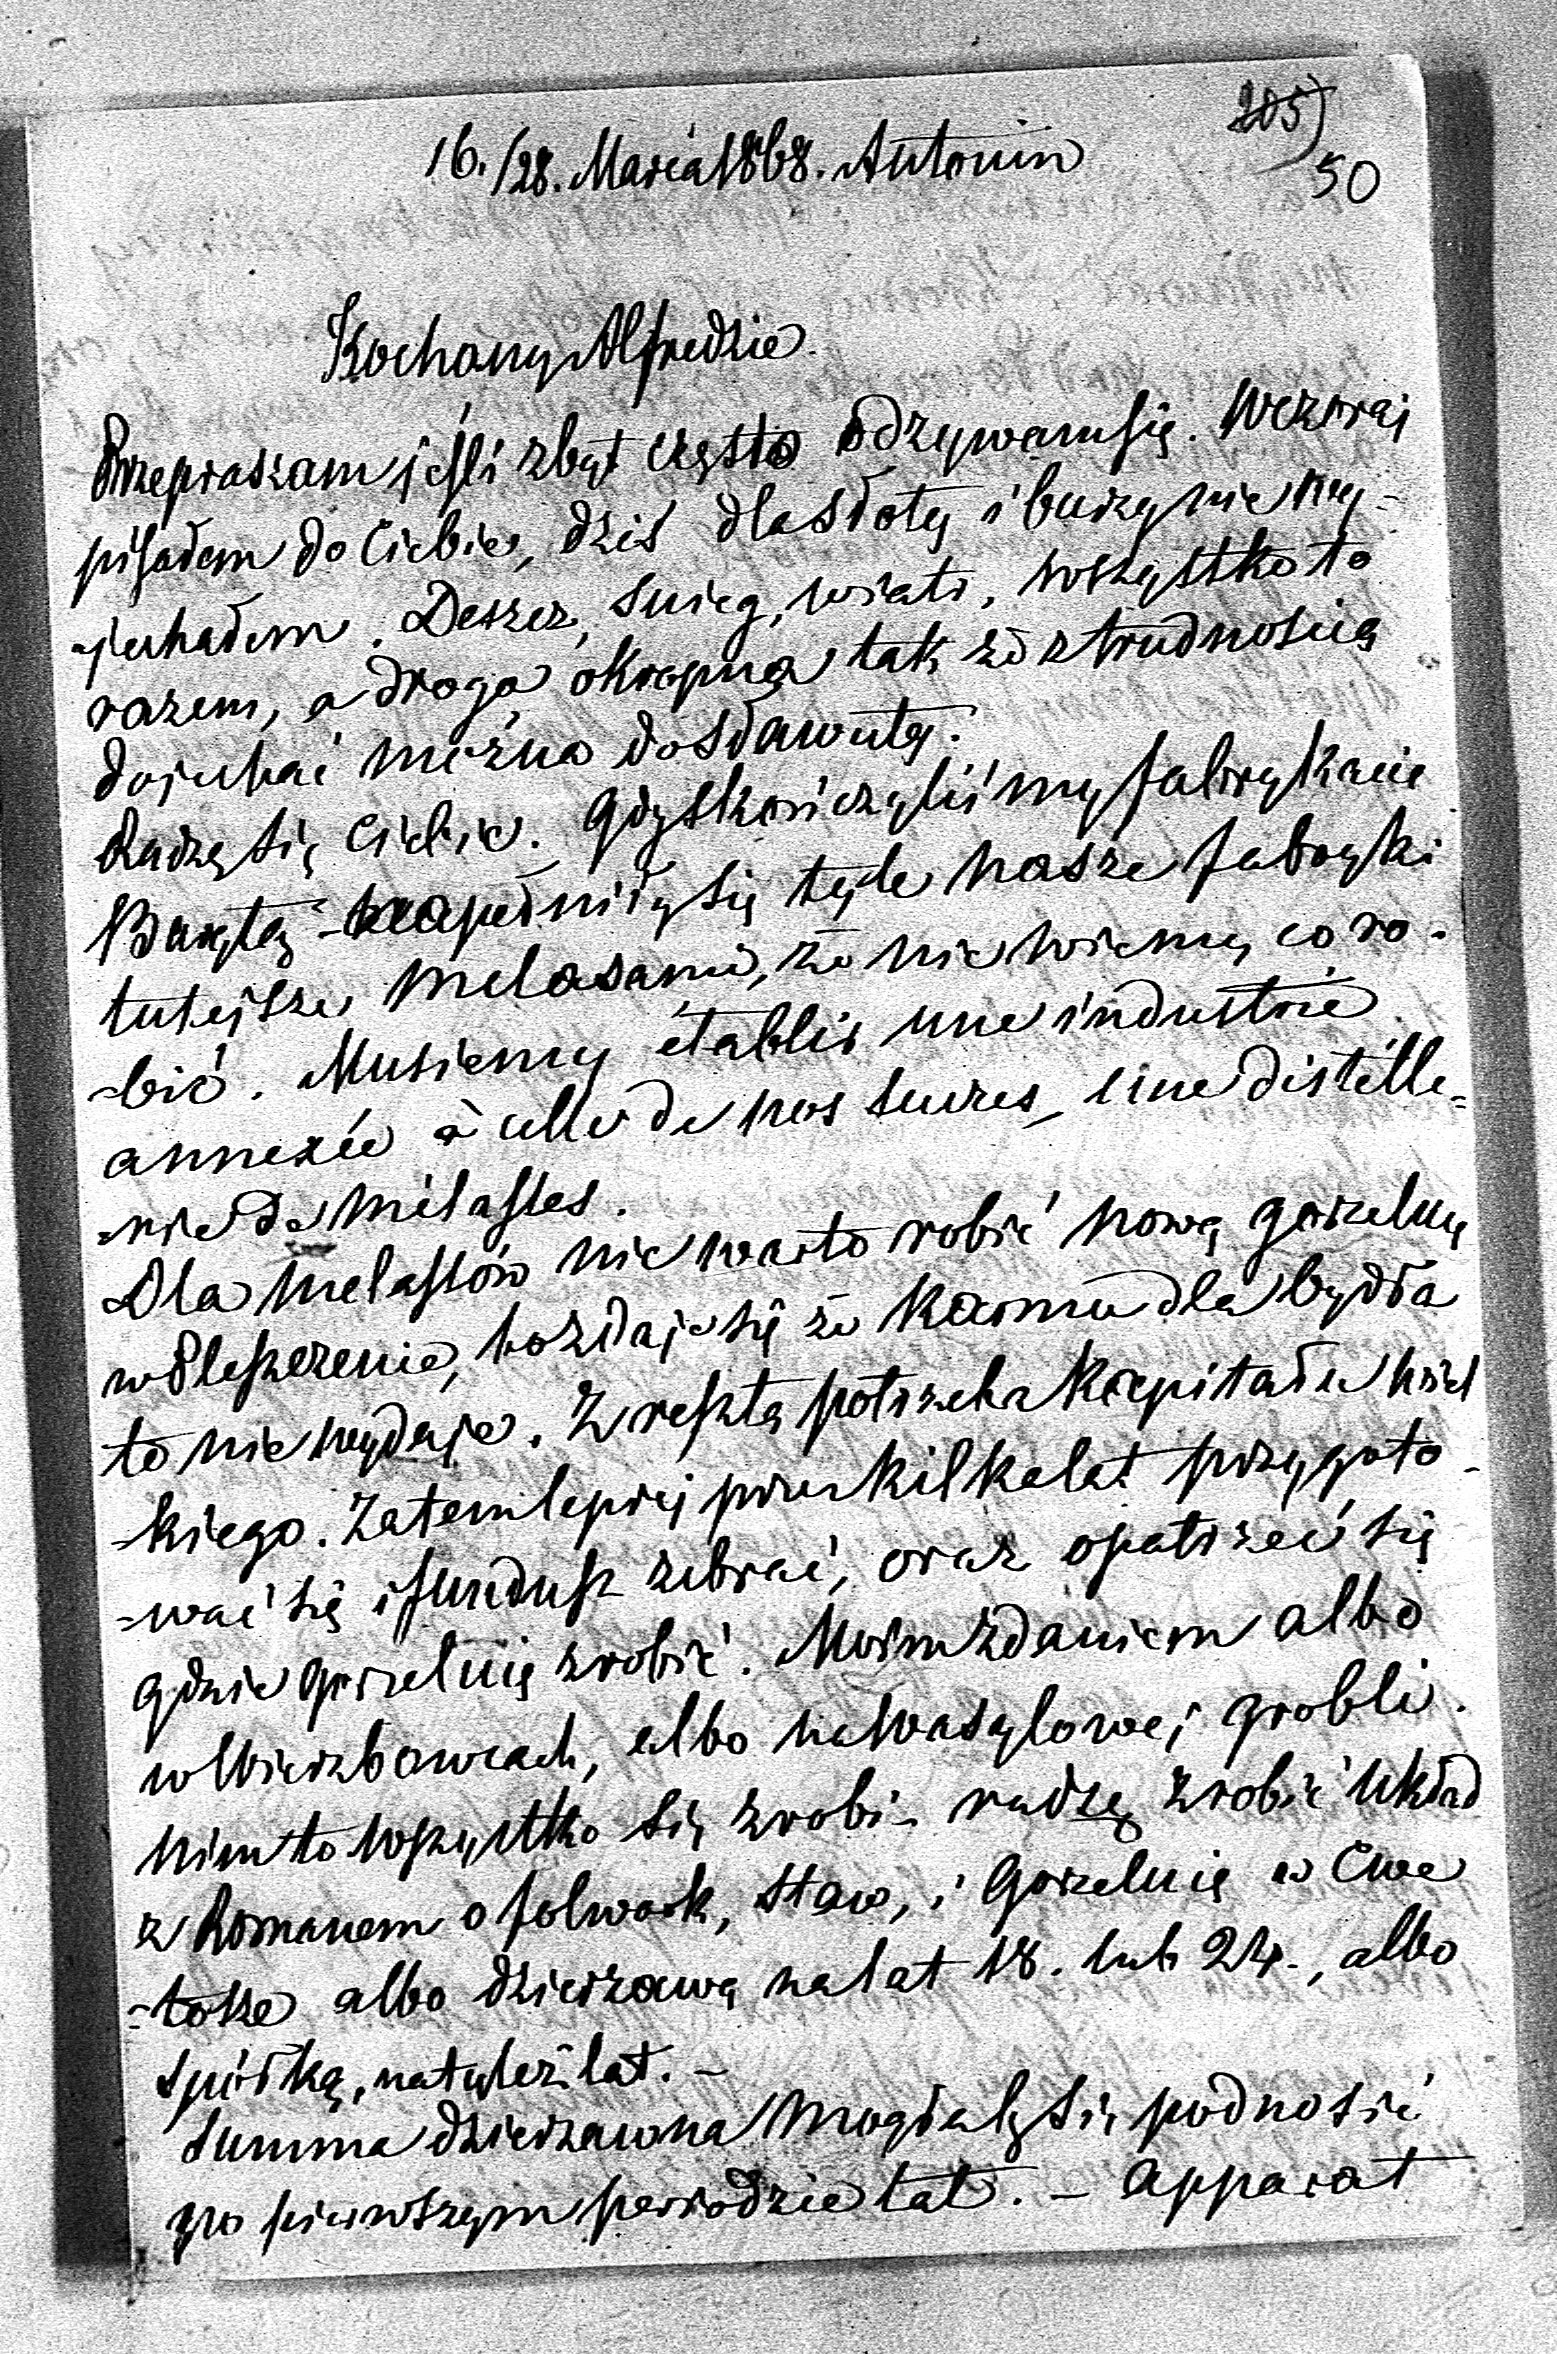 205)
50
16./28. Marca 1868. Antonin
Kochany Alfredzie.
Przepraszam jeśli zbyt często odzywam się. Wczoraj
pisałem do Ciebie, dziś dla słoty i burzy nie wy-
-jechałem. Deszcz, śnieg, wiatr, wszystko to
razem, a droga okropna tak że z trudnością
dojechać można do Sławuty.
Radzę się Ciebie. Gdy skończyliśmy fabrykacie
zapełniły się tyle nasze fabryki
tutejsze melasami, że nie wiemy co ro-
-bić. Musiemy établir une industrie
annexée à celle de nos sucres, une distille-
-rie de mélasses.
Dla melassów nie warto robić nową gorzelnię
w Pleszczenie, bo zdaje się że karmu dla bydła
to nie wydaje. Z resztą potrzeba kapitału wiel
-kiego. Zatem lepiej przez kilka lat przygoto-
-wać się i fundusz zebrać, oraz opatrzeć się
gdzie gorzelnię zrobić. Moim zdaniem albo
w Wierzbowcach, albo na Wasylowej grobli.
Nim to wszystko się zrobi - radzę zrobić układ
z Romanem o folwark, staw, i gorzelnię w Cwe
-tosze albo dzierżawą na lat 18. lub 24., albo
spółką, na tyleż lat. -
Summa dzierżawna mogłaby się podnosić
po pierwszym periodzie lat. - Apparat